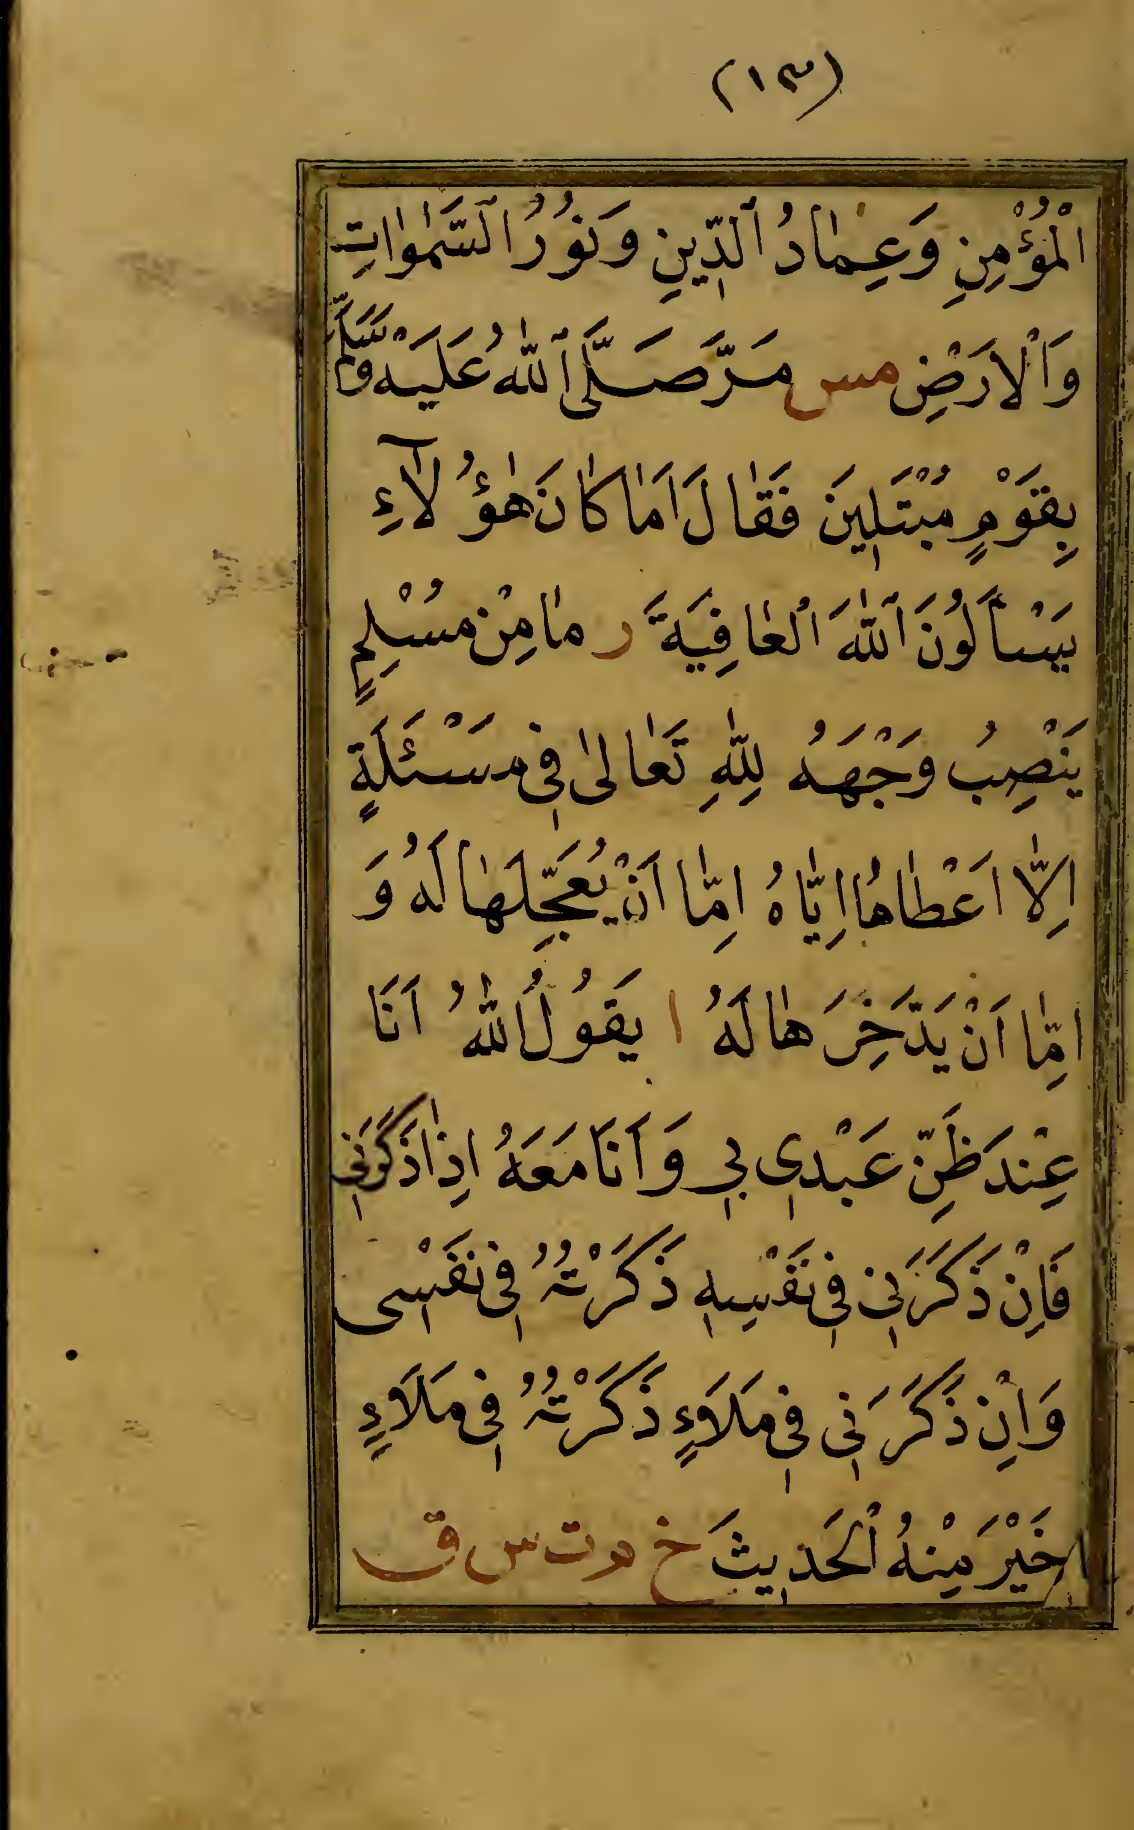 (١٣)
الْمُؤْمِنِ وَعِمَادُ الدِّينِ وَنُورُ السَّمٰوَاتِ
وَالْاَرْضِ مس مَرَّ صَلَّى اللّٰهُ عَلَيْهِ وَسَلَّمَ
بِقَوْمٍ مُبْتَلِينَ فَقَالَ اَمَا كَانَ هٰؤُلَآءِ
يَسْأَلُونَ اللّٰهَ الْعَافِيَةَ ر مَا مِنْ مُسْلِمٍ
يَنْصِبُ وَجْهَهُ لِلّٰهِ تَعَالىٰ فِى مَسْئَلَةٍ
اِلَّا اَعْطَاهَا اِيَّاهُ اِمَّا اَنْ يُعَجِّلَهَا لَهُ وَ
اِمَّا اَنْ يَدَّخِرَهَا لَهُ ا يَقُولُ اللّٰهُ اَنَا
عِنْدَ ظَنِّ عَبْدِى بِى وَاَنَا مَعَهُ اِذَا ذَكَرَنِى
فَاِنْ ذَكَرَنِى فِى نَفْسِهِ ذَكَرْتُهُ فِى نَفْسِى
وَاِنْ ذَكَرَنِى فِى مَلَاءٍ ذَكَرْتُهُ فِى مَلَاءٍ
خَيْرٍ مِنْهُ الْحَدِيثَ خ م ت س ق